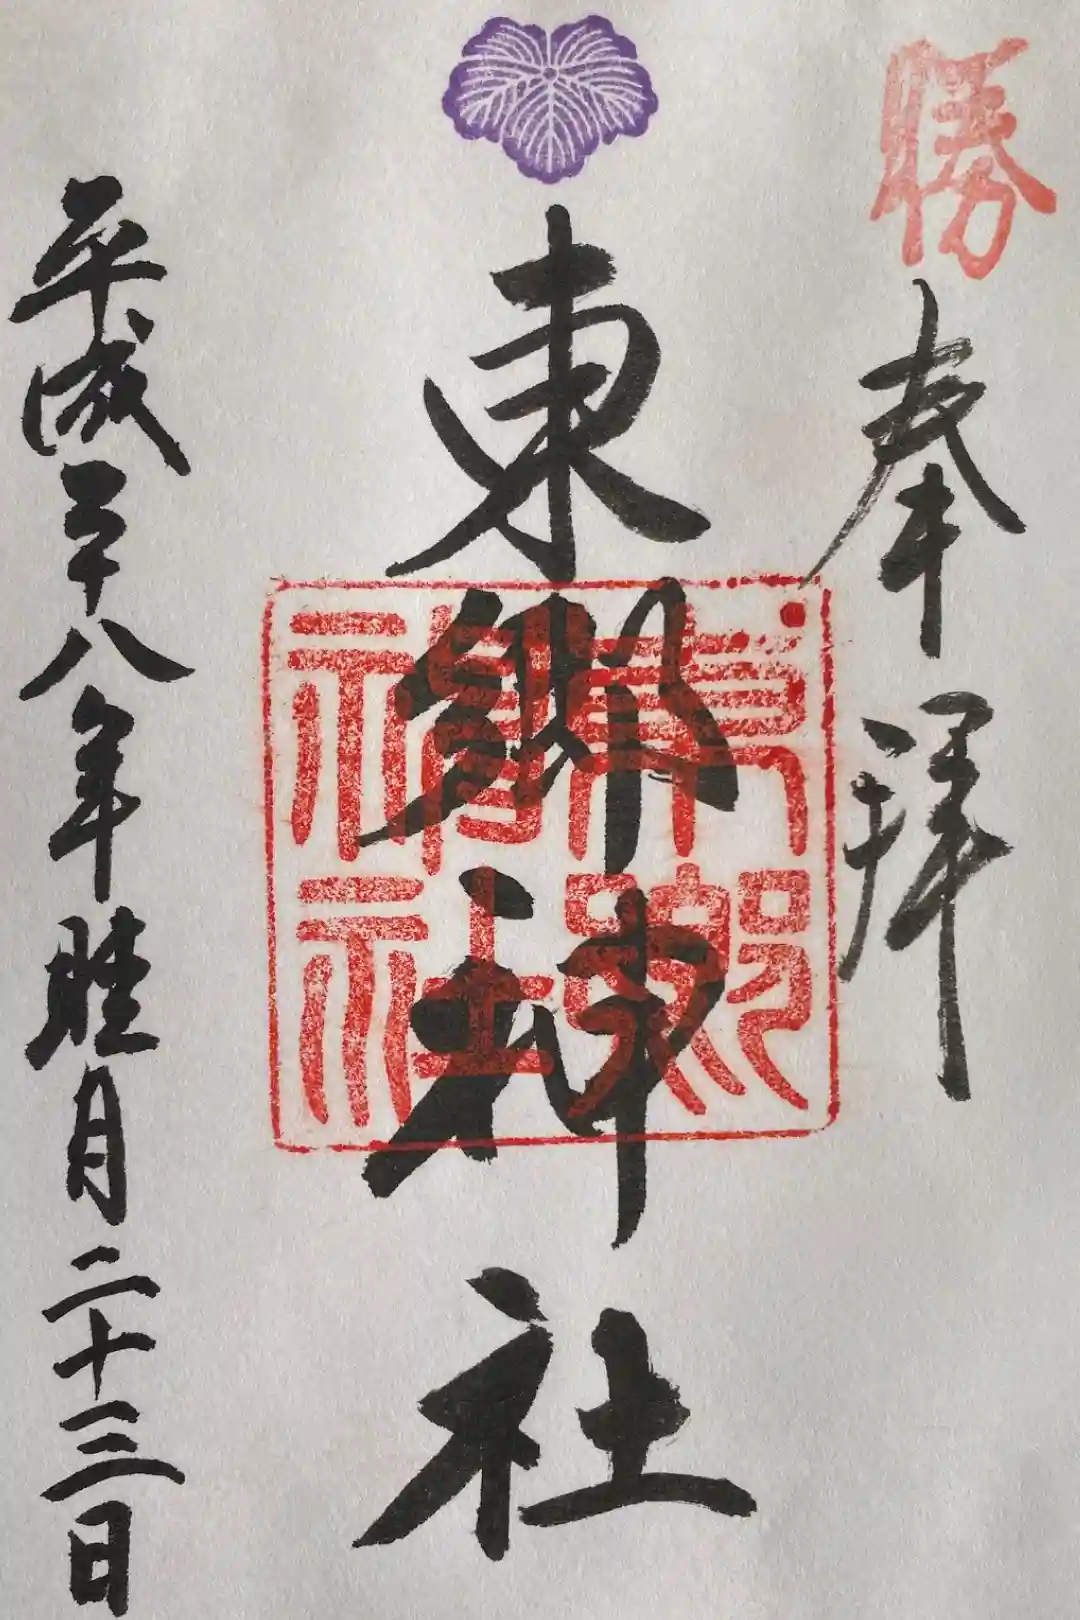 勝
奉拝
東郷神社
平成二十八年睦月二十三日